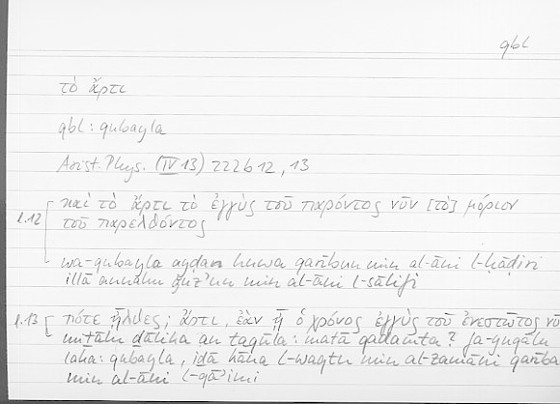 qbl
τὸ ἄρτι
qbl: qubayla
Arist. Phys. (IV 13) 222b12, 13
l.12 καὶ τὸ ἄρτι τὸ ἐγγὺς τοῦ παρόντος νῦν [τὸ] μόριον
τοῦ παρελθόντος
wa-qubayla ayḍan huwa qarībun min al-āni l-ḥāḍiri
illā annahu ǧuz’un min al-āni l-sālifi
l.13 πότε ἦλθες; ἄρτι, ἐὰν ᾖ ὁ χρόνος ἐγγὺς τοῦ ἐνεστῶτος νῦ
miṯālu ḏālika an taqūla: matā qadamta? fa-yuqālu
laka: qubayla, iḏā kāna l-waqtu min al-zamāni qarība
min al-āni l-qā’imi